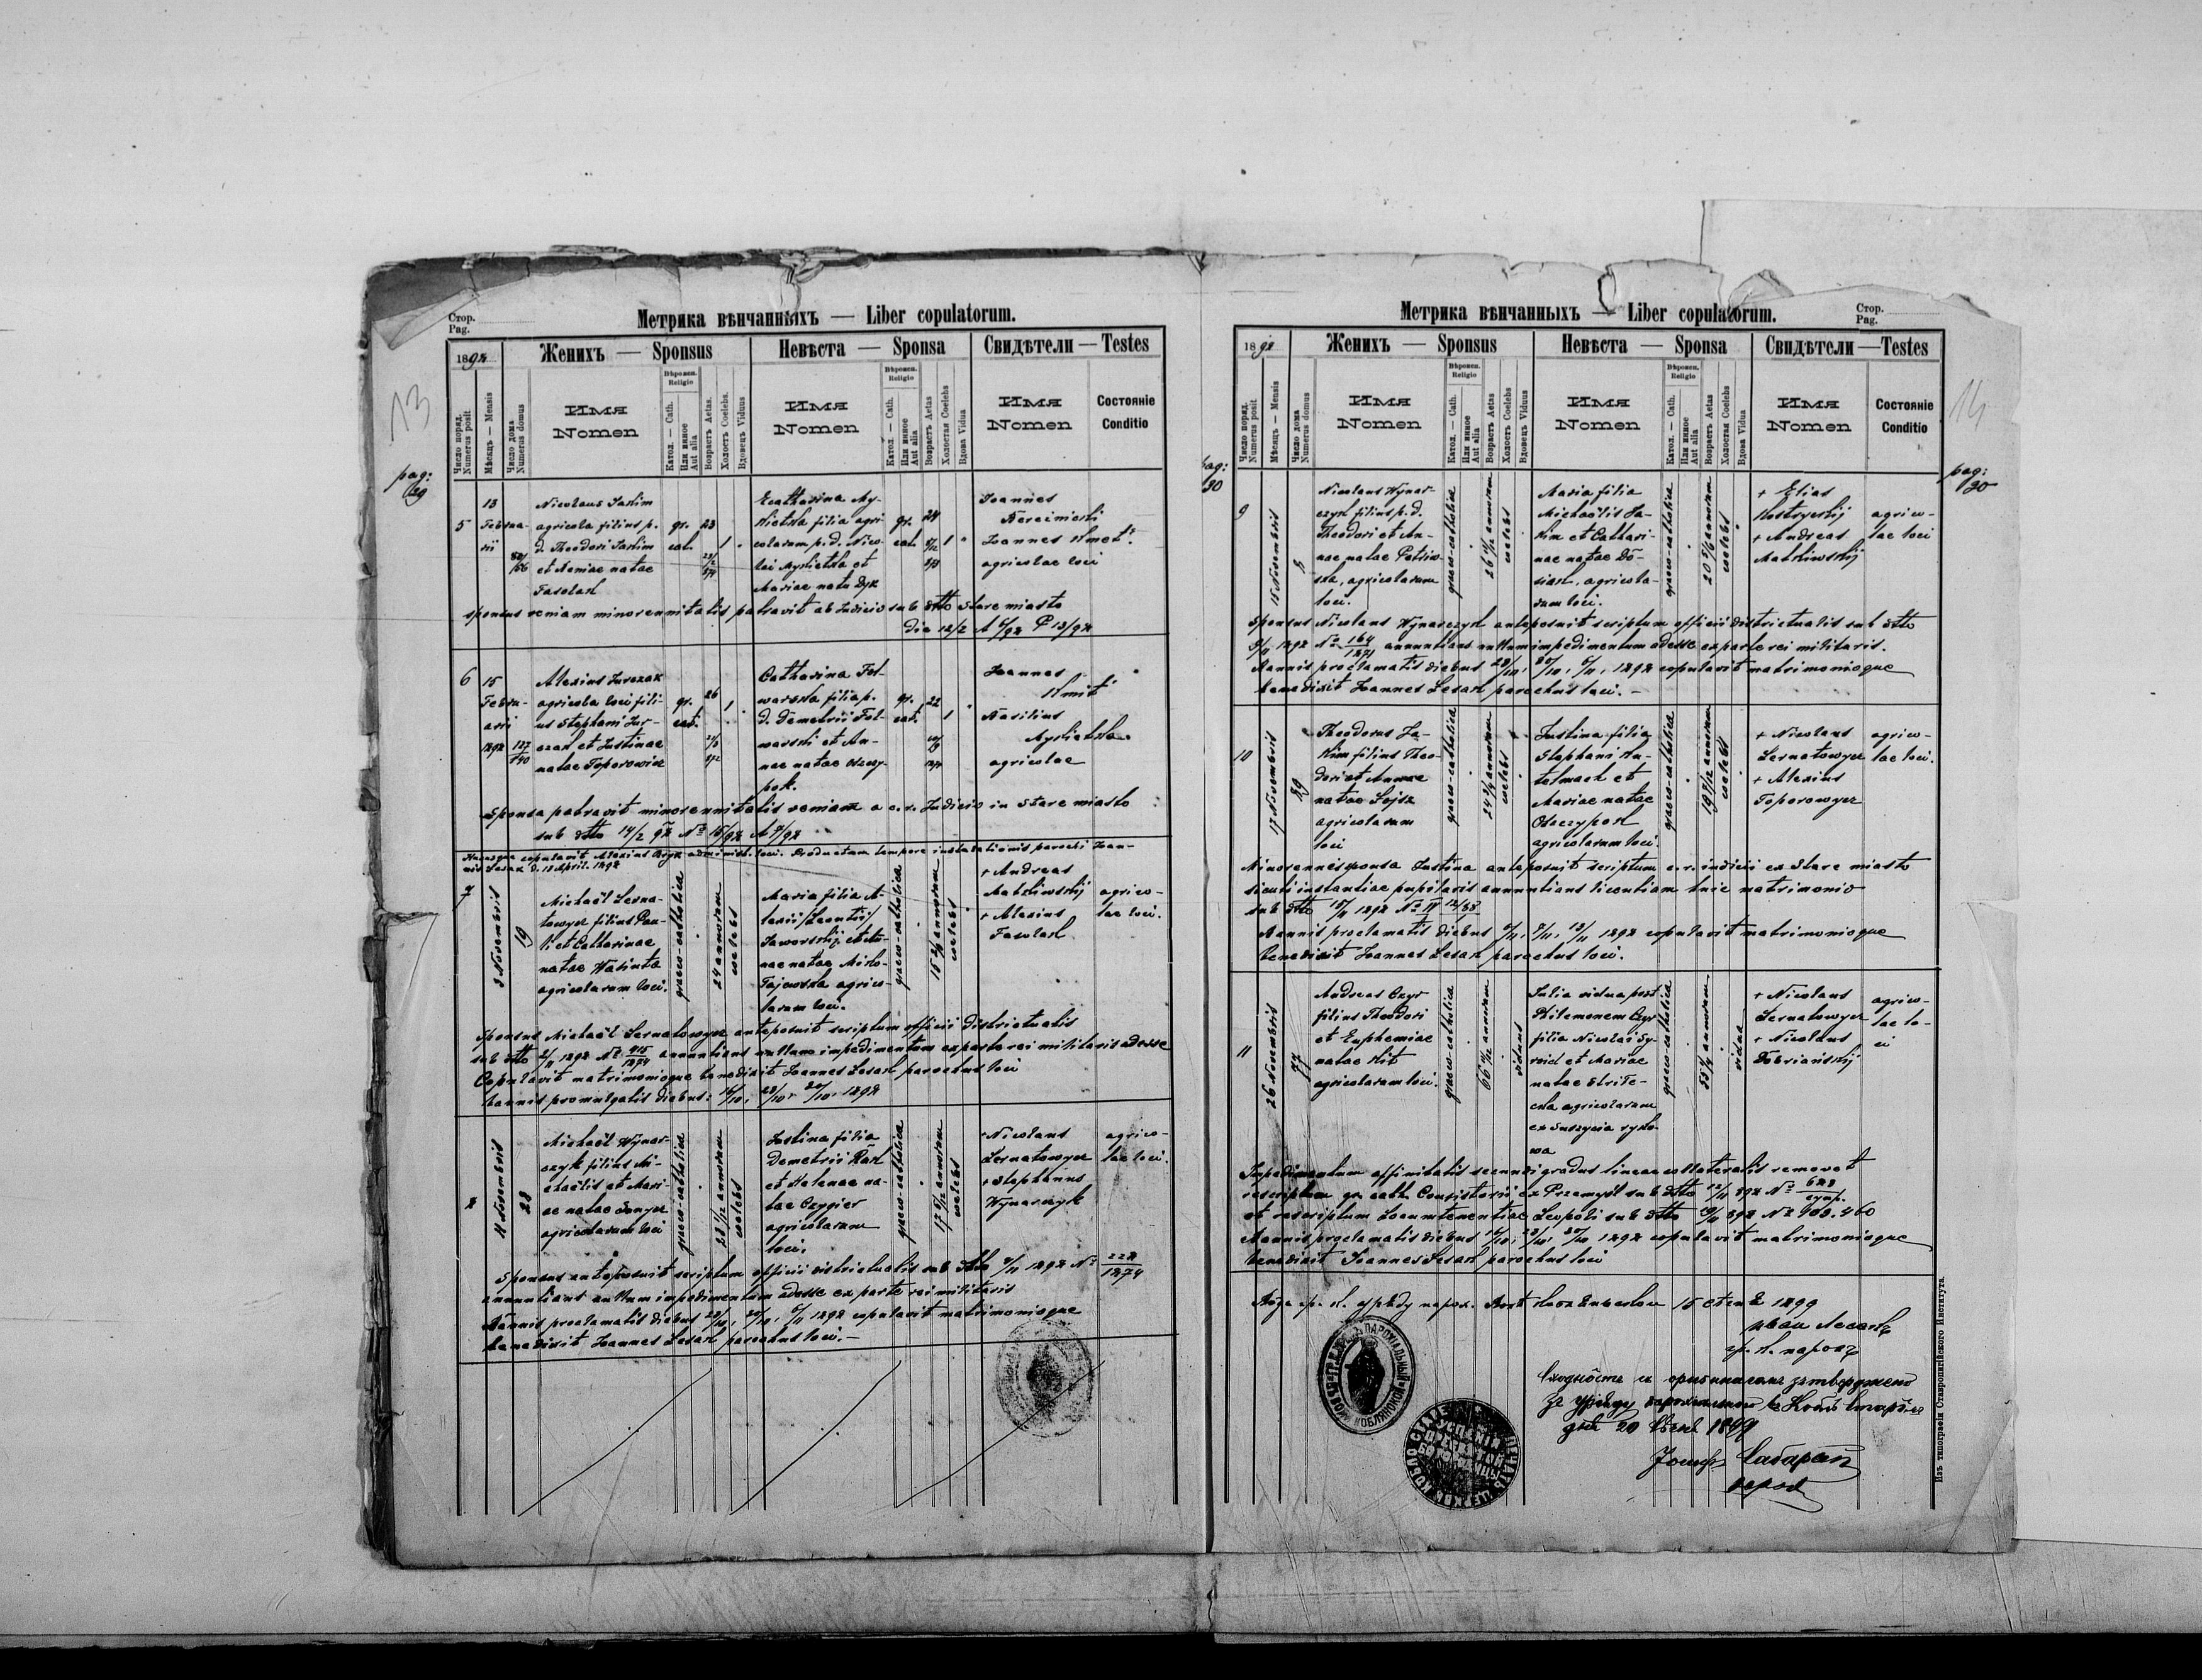 Стор.
Pag.
Метрика вѣнчанныхъ — Liber copulatorum.
1892
Женихъ — Sponsus
Невѣста — Sponsa
Свидѣтели — Testes
Число поряд.
Numerus posit
Мѣсяцъ — Mensis
Число дома
Numerus domus
Имя
Nomen
Вѣроисп.
Religio
Катол. — Cath.
Или инное
Aut alia
Возрастъ Aetas.
Холостъ Coelebs.
Вдовецъ Viduus
Имя
Nomen
Вѣроисп.
Religio
Катол. — Cath.
Или инное
Aut alia
Возрастъ Aetas
Холостая Coelebs
Вдова Vidua
Имя
Nomen
Состояніе
Conditio
13
pag:
29
5
13
Februa-
rii
Nicolaus Jakim
agricola filius p.
d. Theodori Jakim
et Annae natae
Fasolak
gr.
cat.
23
1
Ecatharina My-
kietka filia agri
colarum p. d. Nico-
lai Mykietka et
Mariae nata Dyk
gr.
cat.
24
1
Joannes
Bereiniecki
Joannes Kmet
agricolae loci
sponsus veniam minorennitatis patravit ab Judicio sub dtto Stare miasto
die 12/2 A 6/92 P 13/92
6
15
Febru-
arii
1892
137
140
Alexius Jurczak
agricola loci fili-
us Stephani Jur-
czak et Justinae
natae Toporowicz
gr.
cat.
26
1
Catharina Fol-
warska filia p.
d. Demetrii Fol-
warski et An-
nae natae Oszczy-
pok.
gr.
cat.
22
1
Joannes
Kmit
Basilius
Mykietka
agricolae
Sponsa patravit minorennitatis veniam a c. r. Judicio in Stare miasto
sub dtto 14/2 92 No 15/92 A 7/92
Hucusque copulavit Alexius Bryk administ. loci. Productum tempore instalationis parochi Joan-
nis Lesak d. 13 April. 1892
7
3 Novembris
19
Michaël Lerna-
towycz filius Pau-
li et Catharinae
natae Wasiuta
agricolarum loci.
graeco-catholica
24 annorum
coelebs
Maria filia A-
lexii /Leontii/
Jaworskij et An-
nae natae Misko-
Fajowska agrico-
larum loci.
graeco-catholica
coelebs
+ Andreas
Matkiwskij
+ Alexius
Fasolak
agrico-
lae loci.
Sponsus Michaël Lernatowycz anteposuit scriptum officii districtualis
sub dtto 2/11 1892 No 215/1274 annuntians nullum impedimentum ex parte rei militaris adesse
Copulavit matrimonioque benedixit Joannes Lesak parochus loci
bannis promulgatis diebus: 16/10, 23/10, 30/10, 1892
11 Novembris
28
Michaël Wynar-
czyk filius Mi-
chaëlis et Mari-
ae natae Senycz
agricolarum loci
graeco-catholica
coelebs
Justina filia
Demetrii Rak
et Helenae na-
tae Czygier
agricolarum
loci.
graeco-catholica
17 5/12 annorum
coelebs
+ Nicolaus
Lernatowycz
+ Stephanus
Wynarczyk
agrico-
lae loci.
Sponsus anteposuit scriptum officii districtualis sub dtto 9/11 1892 No 222/1274
annuntians nullum impedimentum adesse ex parte rei militaris
Bannis proclamatis diebus 23/10, 30/10, 6/11 1892 copulavit matrimonioque
benedixit Joannes Lesak parochus loci. —
Метрика вѣнчанныхъ — Liber copulatorum.
Стор.
Pag.
1892
Женихъ — Sponsus
Невѣста — Sponsa
Свидѣтели — Testes
Число поряд.
Numerus posit
Мѣсяцъ — Mensis
Число дома
Numerus domus
Имя
Nomen
Вѣроисп.
Religio
Катол. — Cath.
Или инное
Aut alia
Возрастъ Aetas.
Холостъ Coelebs.
Вдовецъ Viduus
Имя
Nomen
Вѣроисп.
Religio
Катол. — Cath.
Или инное
Aut alia
Возрастъ Aetas
Холостая Coelebs
Вдова Vidua
Имя
Nomen
Состояніе
Conditio
14
pag:
30
pag:
30
9
15 Novembris
Nicolaus Wynar-
czyk filius p. d.
Theodori et An-
nae natae Petriw-
ska, agricolarum
loci.
graeco-catholica
coelebs
Maria filia
Michaëlis Ja-
kim et Cathari-
nae natae Do-
siak, agricola-
rum loci.
graeco-catholica
20 5/6 annorum
coelebs
+ Elias
Kostryckij
+ Andreas
Matkiwskij
agrico-
lae loci
Sponsus Nicolaus Wynarczyk anteposuit scriptum officii districtualis sub dtto
9/11 1892 No 164/1271 annuntians nullum impedimentum adesse ex parte rei militaris.
Bannis proclamatis diebus 23/10, 30/10, 6/11, 1892 copulavit matrimonioque
benedixit Joannes Lesak parochus loci. —
10
17 Novembris
29
Theodorus Ja-
kim filius Theo-
dori et Annae
natae Lojsz
agricolarum
loci
graeco-catholica
24 3/4 annorum
coelebs
Justina filia
Stephani Ku-
telmach et
Mariae natae
Oszczypok
agricolarum loci.
graeco-catholica
19 7/12 annorum
coelebs
+ Nicolaus
Lernatowycz
+ Alexius
Toporowycz
agrico-
lae loci.
Minorennis sponsa Justina anteposuit scriptum c. r. iudicii ex Stare miasto
sicuti instantiae pupilaris annuntians licentiam huic matrimonio
sub dtto 15/11 1892 No IV 12/88
Bannis proclamatis diebus 6/11, 9/11, 13/11 1892 copulavit matrimonioque
benedixit Joannes Lesak parochus loci.
11
26 Novembris
77
Andreas Czyr
filius Theodori
et Euphemiae
natae Kit
agricolarum loci.
graeco-catholica
viduus
Julia vidua post
Philemonem Czyr
filia Nicolai Sy-
roid et Mariae
natae Strile-
cka agricolarum
ex Suszycia ryko-
wa
graeco-catholica
53 1/4 annorum
vidua
+ Nicolaus
Lernatowycz
+ Nicolaus
Dobrianskij
agrico-
lae lo-
ci
Impedimentum affinitatis secundi gradus lineae collateralis removet
rescriptum gr. cath. Consistorii ex Przemyśl sub dtto 12/11 892 No 628/cop.
et rescriptum Locumtenentiae Leopoli sub dtto 19/11 892 No 903.460
Bannis proclamatis diebus 16/10, 23/10, 30/10 1892 copulavit matrimonioque
benedixit Joannes Lesak parochus loci
15 1899
Иван Лесакъ
гр. к. парох
Сходность съ оригиналомъ затверджено
дня 20 Січня 1899
Изъ типографіи Ставропигійского Института.